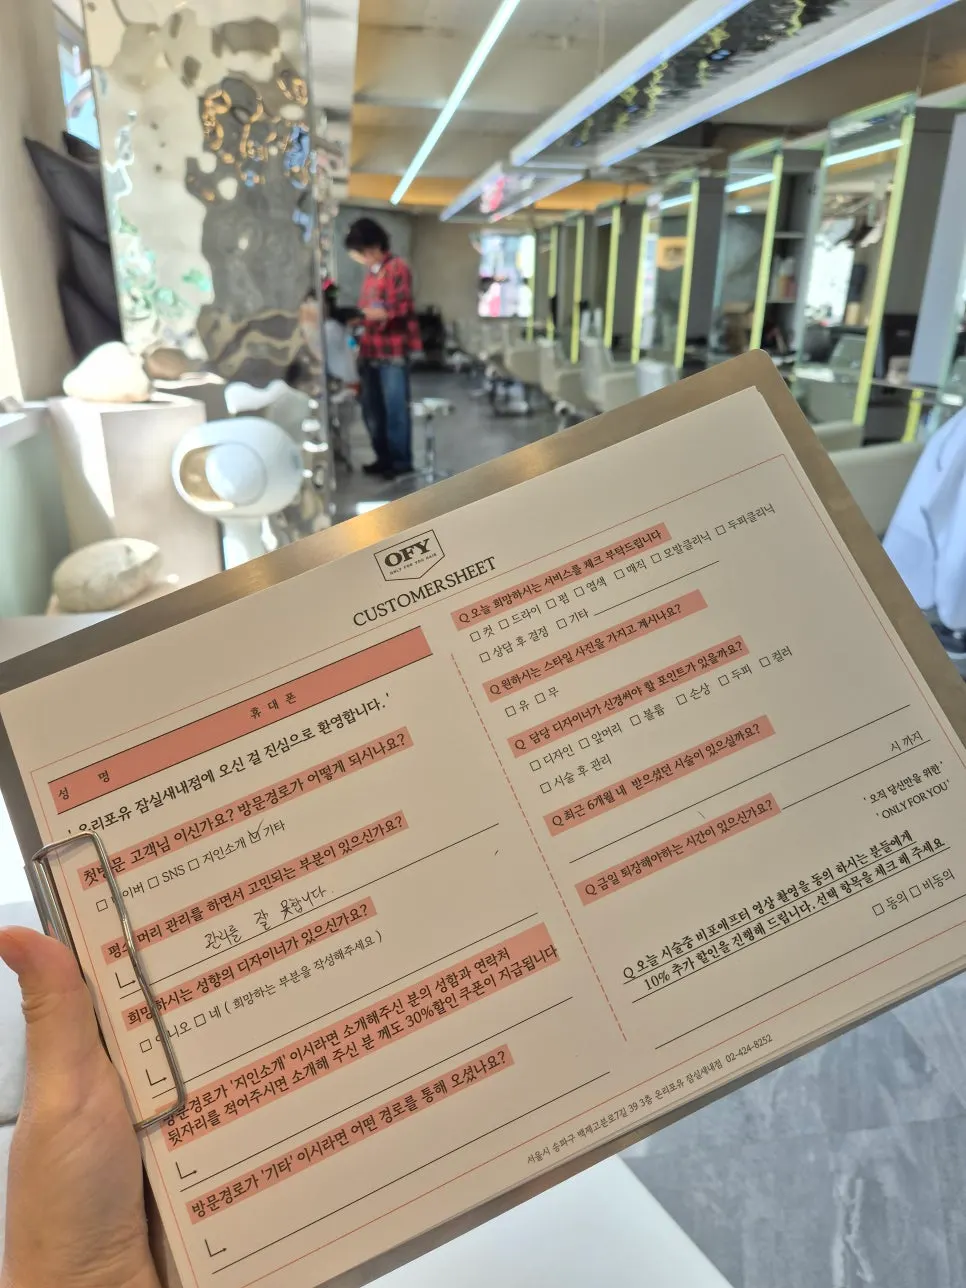 OFY
ONLY FOR YOU HAIR
CUSTOMERSHEET
성 명
휴 대 폰
' 온리포유 잠실새내점에 오신 걸 진심으로 환영합니다.'
첫방문 고객님 이신가요? 방문경로가 어떻게 되시나요?
이버 □ SNS □ 지인소개 ☑ 기타
평소 머리 관리를 하면서 고민되는 부분이 있으신가요?
관리를 잘 못합니다.
희망하시는 성향의 디자이너가 있으신가요?
□ 아니오 □ 네 ( 희망하는 부분을 작성해주세요 )
방문경로가 '지인소개' 이시라면 소개해주신 분의 성함과 연락처
뒷자리를 적어주시면 소개해 주신 분 께도 30%할인 쿠폰이 지급됩니다
방문경로가 '기타' 이시라면 어떤 경로를 통해 오셨나요?
Q 오늘 희망하시는 서비스를 체크 부탁드립니다
□ 컷 □ 드라이 □ 펌 □ 염색 □ 매직 □ 모발클리닉 □ 두피클리닉
□ 상담 후 결정 □ 기타
Q 원하시는 스타일 사진을 가지고 계시나요?
□ 유 □ 무
Q 담당 디자이너가 신경써야 할 포인트가 있을까요?
□ 디자인 □ 앞머리 □ 볼륨 □ 손상 □ 두피 □ 컬러
□ 시술 후 관리
Q 최근 6개월 내 받으셨던 시술이 있으실까요?
Q 금일 퇴장해야하는 시간이 있으신가요?
시 까지
' 오직 당신만을 위한 '
' ONLY FOR YOU'
Q 오늘 시술중 비포애프터 영상 촬영을 동의 하시는 분들에게
10% 추가 할인을 진행해 드립니다. 선택 항목을 체크 해 주세요
□ 동의 □ 비동의
서울시 송파구 백제고분로7길 39 3층 온리포유 잠실새내점 02-424-8252